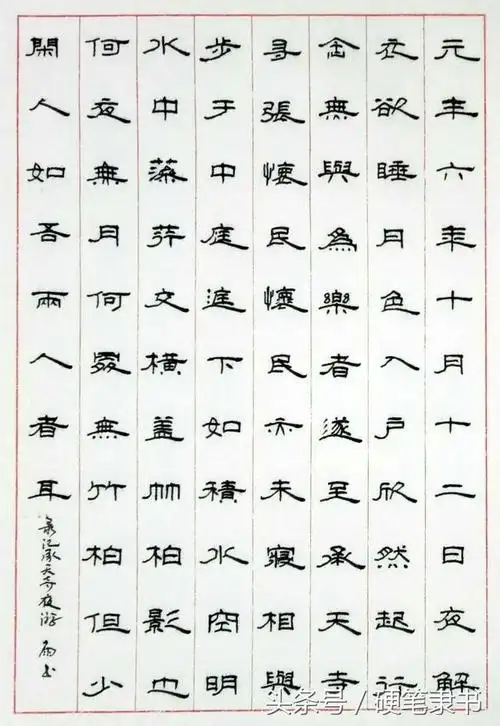 元丰六年十月十二日夜解
衣欲睡月色入户欣然起行
念無與爲樂者遂至承天寺
寻張懷民懷民亦未寢相與
步于中庭庭下如積水空明
水中藻荇文横盖竹柏影也
何夜無月何處無竹柏但少
閑人如吾兩人者耳
录记承天寺夜游
头条号/硬笔隶书